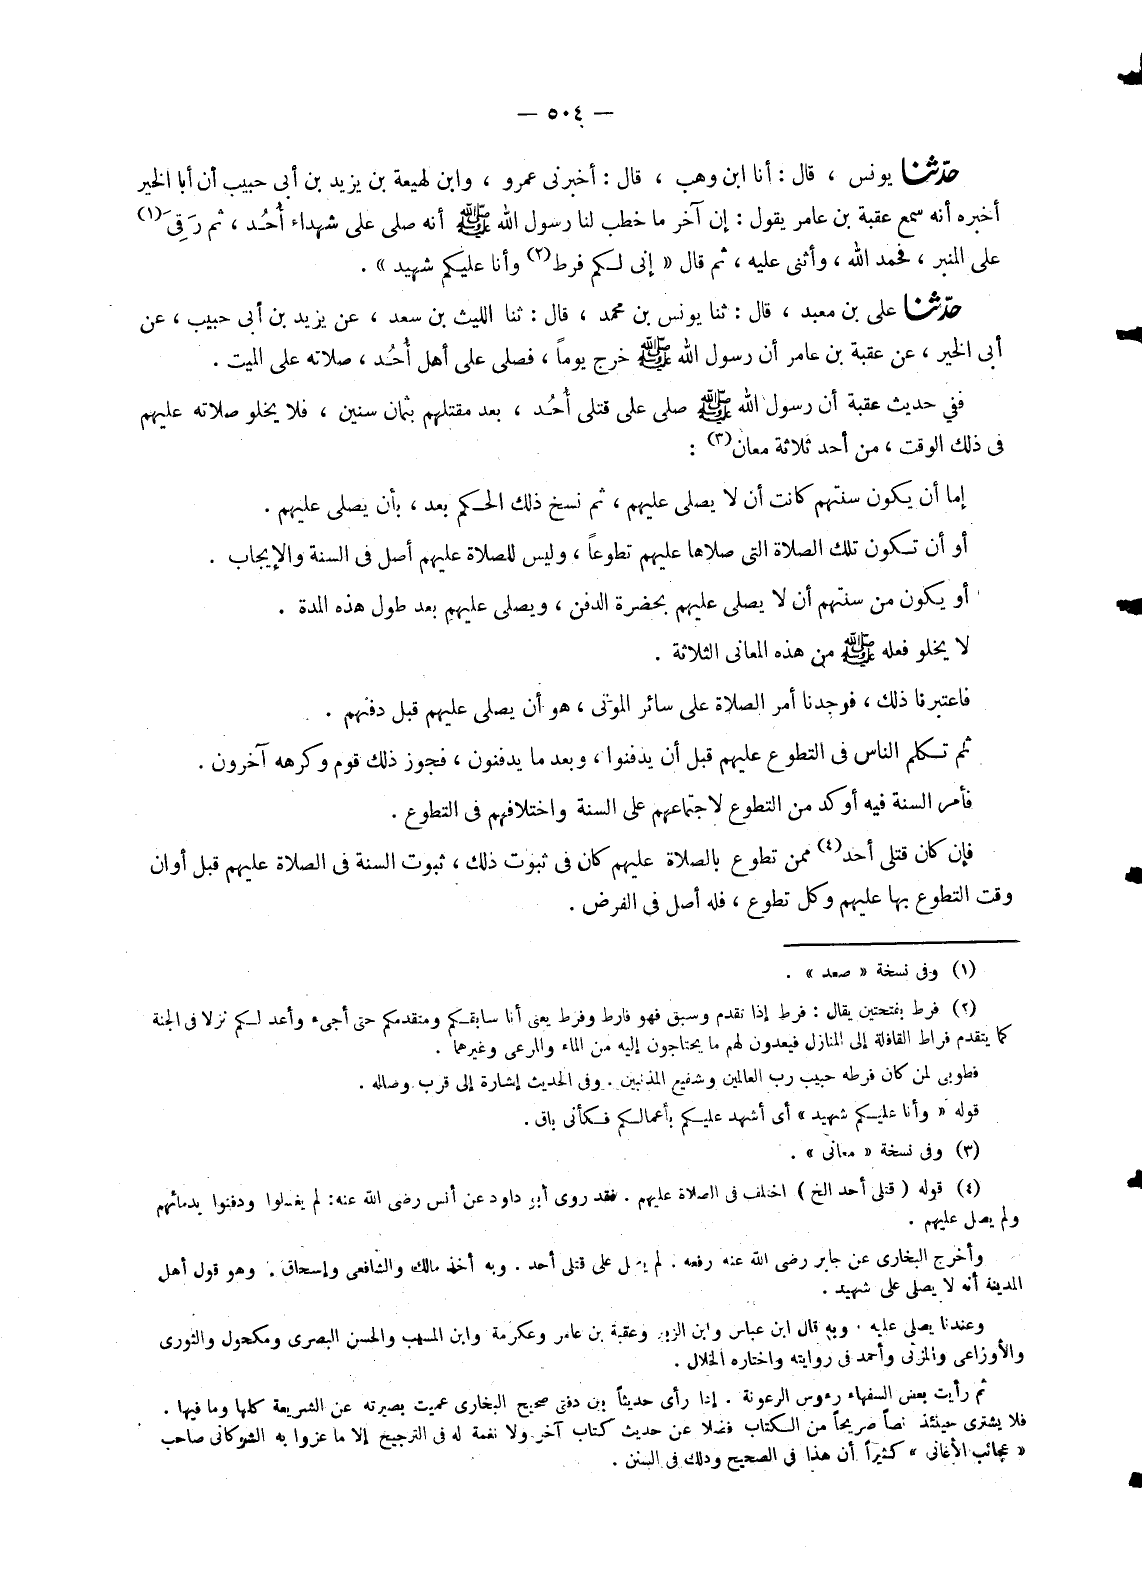 — ٥٠٤ —
حدّثنا يونس ، قال : أنا ابن وهب ، قال : أخبرنى عمرو ، وابن لهيعة بن يزيد بن أبى حبيب أن أبا الخير
أخبره أنه سمع عقبة بن عامر يقول : إن آخر ما خطب لنا رسول الله ﷺ أنه صلى على شهداء أُحُد ، ثم رَقِىَ(١)
على المنبر ، فحمد الله ، وأثنى عليه ، ثم قال « إنى لكم فرط(٢) وأنا عليكم شهيد » .
حدّثنا على بن معبد ، قال : ثنا يونس بن محمد ، قال : ثنا الليث بن سعد ، عن يزيد بن أبى حبيب ، عن
أبى الخير ، عن عقبة بن عامر أن رسول الله ﷺ خرج يوماً ، فصلى على أهل أُحُد ، صلاته على الميت .
ففي حديث عقبة أن رسول الله ﷺ صلى على قتلى أُحُد ، بعد مقتلهم بثمان سنين ، فلا يخلو صلاته عليهم
فى ذلك الوقت ، من أحد ثلاثة معان(٣) :
إما أن يكون سنتهم كانت أن لا يصلى عليهم ، ثم نسخ ذلك الحكم بعد ، بأن يصلى عليهم .
أو أن تكون تلك الصلاة التى صلاها عليهم تطوعاً ، وليس للصلاة عليهم أصل فى السنة والإيجاب .
أو يكون من سنتهم أن لا يصلى عليهم بحضرة الدفن ، ويصلى عليهم بعد طول هذه المدة .
لا يخلو فعله ﷺ من هذه المعانى الثلاثة .
فاعتبرنا ذلك ، فوجدنا أمر الصلاة على سائر الموتى ، هو أن يصلى عليهم قبل دفنهم .
ثم تكلم الناس فى التطوع عليهم قبل أن يدفنوا ، وبعد ما يدفنون ، فجوز ذلك قوم وكرهه آخرون .
فأمر السنة فيه أوكد من التطوع لاجتماعهم على السنة واختلافهم فى التطوع .
فإن كان قتلى أحد(٤) ممن تطوع بالصلاة عليهم كان فى ثبوت ذلك ، ثبوت السنة فى الصلاة عليهم قبل أوان
وقت التطوع بها عليهم وكل تطوع ، فله أصل فى الفرض .
(١) وفى نسخة « صعد » .
(٢) فرط بفتحتين يقال : فرط إذا تقدم وسبق فهو فارط وفرط يعنى أنا سابقكم ومتقدمكم حتى أجىء وأعد لكم نزلا فى الجنة
كما يتقدم فراط القافلة إلى المنازل فيعدون لهم ما يحتاجون إليه من الماء والمرعى وغيرهما .
فطوبى لمن كان فرطه حبيب رب العالمين وشفيع المذنبين . وفى الحديث إشارة إلى قرب وصاله .
قوله « وأنا عليكم شهيد » أى أشهد عليكم بأعمالكم فكأنى باق .
(٣) وفى نسخة « معانى » .
(٤) قوله ( قتلى أحد الخ ) اختلف فى الصلاة عليهم . فقد روى أبو داود عن أنس رضى الله عنه : لم يغسلوا ودفنوا بدمائهم
ولم يصل عليهم .
وأخرج البخارى عن جابر رضى الله عنه رفعه . لم يصل على قتلى أحد . وبه أخذ مالك والشافعى وإسحاق . وهو قول أهل
المدينة أنه لا يصلى على شهيد .
وعندنا يصلى عليه . وبه قال ابن عباس وابن الزبير وعقبة بن عامر وعكرمة وابن المسيب والحسن البصرى ومكحول والثورى
والأوزاعى والمزنى وأحمد فى روايته واختاره الخلال .
ثم رأيت بعض السفهاء رءوس الرعونة . إذا رأى حديثاً بن دفتى صحيح البخارى عميت بصيرته عن الشريعة كلها وما فيها .
فلا يشترى حينئذ نصاً صريحاً من الكتاب فضلا عن حديث كتاب آخر ولا نغمة له فى الترجيح إلا ما عزوا به الشوكانى صاحب
« عجائب الأغانى » كثيراً أن هذا فى الصحيح وذلك فى السنن .